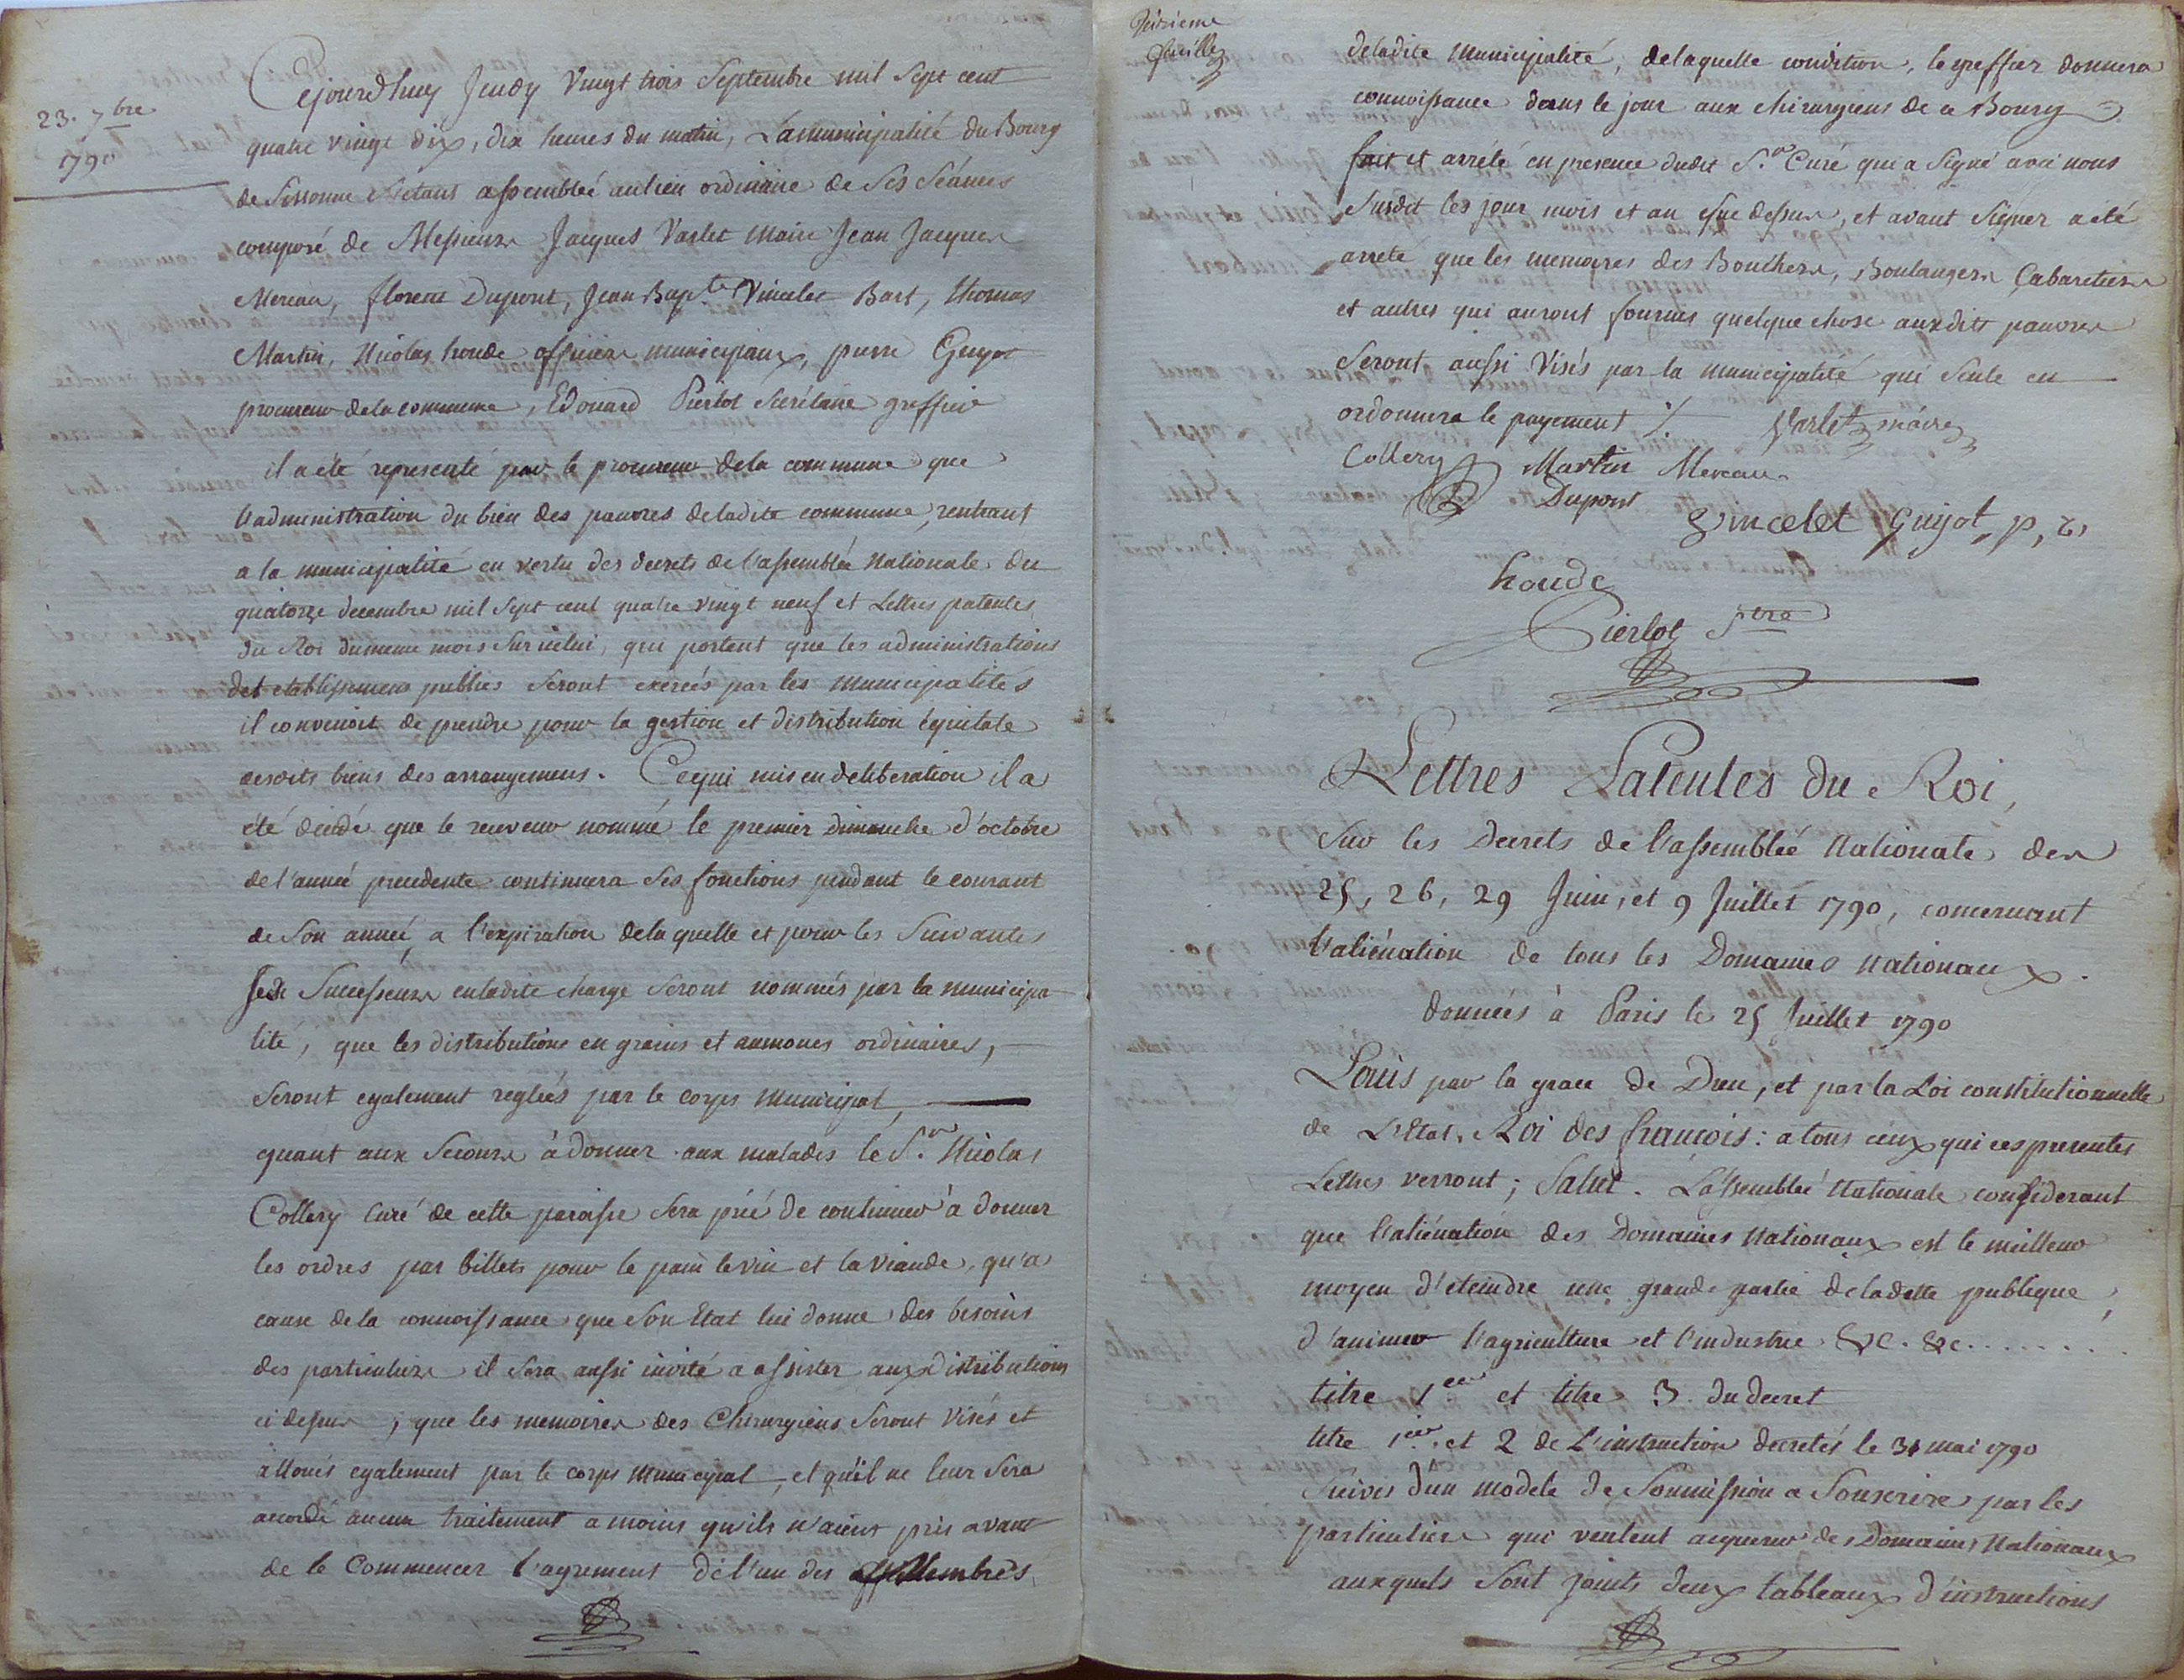 23. 7bre
1790
Cejourdhuy Jeudy Vingt trois Septembre mil Sept cent
quatre vingt dix, dix heures du matin, La municipalité du Bourg
de Sissonne S'étant assemblée au lieu ordinaire de Ses Séances
composé de Messieurs Jacques Varlet maire Jean Jacques
Mereau, florent Dupont, Jean Bapte Vincelet Bart, thomas
Martin, Nicolas houde officiers municipaux, pierre Guyot
procureur dela commune, Edouard Pierlot Secrétaire greffier
il a été representé par le procureur dela commune que
l'administration du bien des pauvres deladite commune, rentrant
a la municipalité en vertu des decrets de l'assemblée Nationale du
quatorze decembre mil Sept cent quatre vingt neuf et Lettres patentes
du Roi dumeme mois Sur icelui, qui portent que les administrations
des etablissemens publics Seront exercés par les municipalités
il convenoit de prendre pour la gestion et distribution équitable
desdits biens des arrangemens. Cequi mis en deliberation il a
été décidé que le receveur nommé le premier dimanche d'octobre
de l'année precedente continuera Ses fonctions pendant le courant
de Son année, a l'expiration dela quelle et pour les Suivantes
Ses Successeurs enladite charge Seront nommés par la municipa
lité, que les distributions en grains et aumones ordinaires,
Seront egalement reglées par le corps municipal,
quant aux Secours à donner aux malades le Sr. Nicolas
Collery Curé de cette paroisse Sera prié de continuer à donner
les ordres par billets pour le pain le vin et la viande, qu'a
cause de la connoissance que Son Etat lui donne des besoins
des particuliers il Sera aussi invité a assister aux distributions
ci dessus ; que les memoires des Chirurgiens Seront Visés et
alloués egalement par le corps municipal, et qu'il ne leur Sera
accordé aucun traitement a moins qu'ils n'aient pris avant
de le Commencer l'agrement de l'un des Membres
feuille
deladite Municipalité, delaquelle condition, le greffier donnera
connoissance dans le jour aux chirurgiens de ce Bourg
fait et arrété en presence dudit Sr. Curé qui a Signé avec nous
Susdit les jour mois et an que dessus, et avant Signer a été
arreté que les memoires des Bouchers, Boulangers Cabaretiers
et autres qui auront fournis quelque chose auxdits pauvres
Seront aussi Visés par la municipalité qui Seule en
ordonnera le payement Varlet maire
Collery Martin Mereau
Dupont
Vincelet Guyot, p,
houde
Pierlot Stre
Lettres Patentes du Roi,
Sur les Decrets de l'assemblée Nationale des
25, 26, 29 Juin, et 9 Juillet 1790, concernant
l'aliénation de tous les Domaines nationaux.
données à Paris le 25 Juillet 1790
Louis par la grace de Dieu, et par la Loi constitutionnelle
de L'Etat, Roi des françois: a tous ceux qui ces presentes
Lettres verront; Salut. L'assemblée Nationale considerant
que l'aliénation des Domaines Nationaux est le meilleur
moyen d'eteindre une grande partie deladette publique,
d'animer l'agriculture et l'industrie &c. &c. ........
titre 1er et titre 3. du decret
titre 1er. et 2 de L'instruction decretés le 31 mai 1790
Suivis d'un modele de Soumission a Souscrire par les
particuliers qui veulent acquerir des Domaines Nationaux
auxquels Sont joints deux tableaux d'instructions